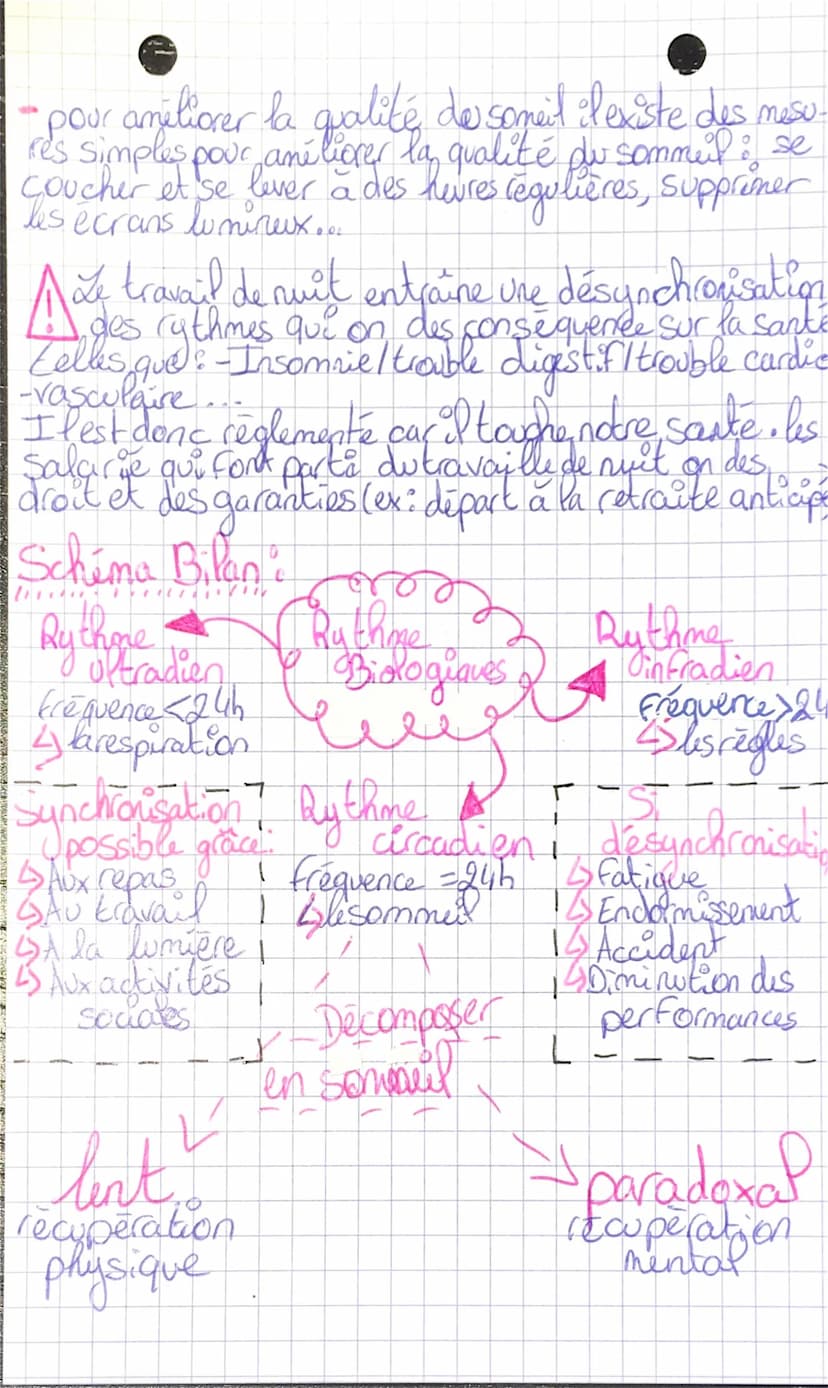 - pour améliorer la qualité de someil il existe des mesu-
res simples pour améliorer la qualité du sommeil : se
coucher et se lever à des heures régulières, supprimer
les écrans lumineux...
⚠ Le travail de nuit entraîne une désynchronisation
des rythmes qui on des conséquence sur la santé
telles que : - Insomnie / trouble digestif / trouble cardio
-vasculaire...
Il est donc règlementé car il touche notre santé. les
salarié qui font parti du travaille de nuit on des
droit et des garanties (ex : départ à la retraite anticipé
Schéma Bilan :
Rythme
Biologiques
Rythme
ultradien
fréquence < 24h
↳ la respiration
Rythme
infradien
Fréquence > 24
↳ les règles
Synchronisation
possible grâce :
↳ Aux repas
↳ Au travail
↳ A la lumière
↳ Aux activités
sociales
Rythme
circadien
fréquence = 24h
↳ le sommeil
Si
désynchronisatio
↳ Fatigue
↳ Endormissement
↳ Accident
↳ Diminution des
performances
Décomposer
en sommeil
lent
récupération
physique
paradoxal
récupération
mental